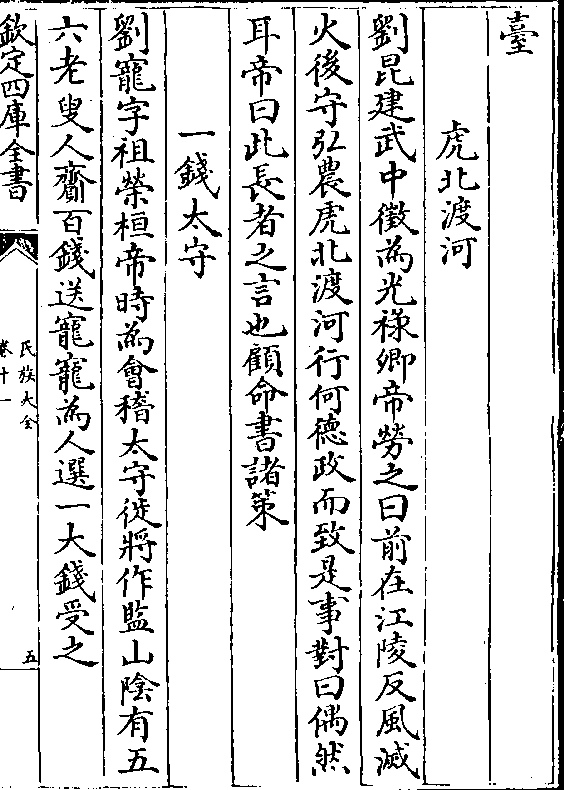 臺
虎北渡河
劉昆建武中徵為光禄卿帝勞之曰前在江陵反風滅
火後守弘農虎北渡河行何德政而致是事對曰偶然
耳帝曰此長者之言也顧命書諸策
一錢太守
劉寵字祖榮桓帝時為㑹稽太守徙將作監山陰有五
六老叟人齎百錢送寵寵為人選一大錢受之
欽定四庫全書
氏族大全
卷十一
五